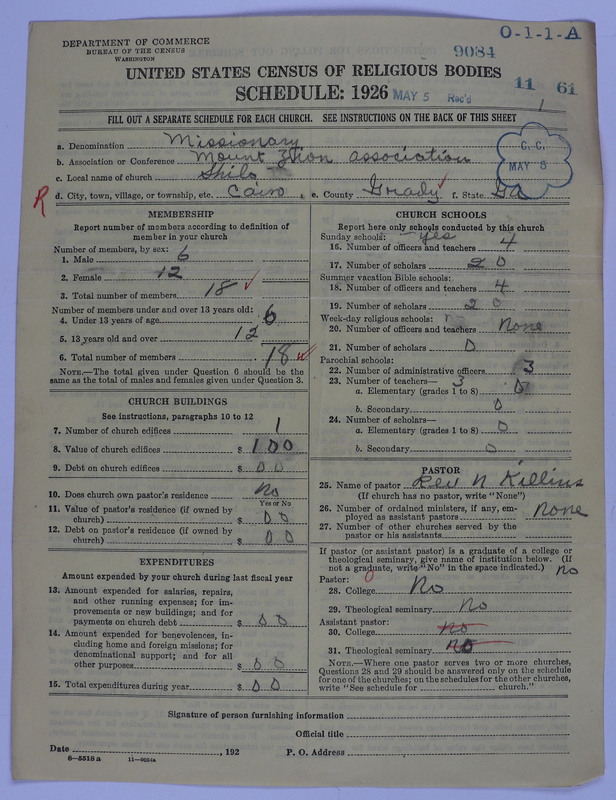 O-1-1-A
DEPARTMENT OF COMMERCE
BUREAU OF THE CENSUS
WASHINGTON
9084
UNITED STATES CENSUS OF RELIGIOUS BODIES
11 61
SCHEDULE: 1926 MAY 5 Rec'd 1
FILL OUT A SEPARATE SCHEDULE FOR EACH CHURCH. SEE INSTRUCTIONS ON THE BACK OF THIS SHEET
a. Denomination Missionary
b. Association or Conference Mount Zion association
c. Local name of church Shilo
C. C. MAY 5
R d. City, town, village, or township, etc. Cairo, e. County Grady f. State Ga
MEMBERSHIP
Report number of members according to definition of
member in your church
Number of members, by sex:
1. Male 6
2. Female 12
3. Total number of members 18
Number of members under and over 13 years old:
4. Under 13 years of age 6
5. 13 years old and over 12
6. Total number of members 18
NOTE.—The total given under Question 6 should be
same as the total of males and females given under Question 3.
CHURCH BUILDINGS
See instructions, paragraphs 10 to 12
7. Number of church edifices 1
8. Value of church edifices $ 100
9. Debt on church edifices $ 00
10. Does church own pastor's residence No
Yes or No
11. Value of pastor's residence (if owned by
church) $ 00
12. Debt on pastor's residence (if owned by
church) $ 00
EXPENDITURES
Amount expended by your church during last fiscal year
13. Amount expended for salaries, repairs,
and other running expenses; for im-
provements or new buildings; and for
payments on church debt $ 00
14. Amount expended for benevolences, in-
cluding home and foreign missions; for
denominational support; and for all
other purposes $ 00
15. Total expenditures during year $ 00
CHURCH SCHOOLS
Report here only schools conducted by this church
Sunday schools: Yes
16. Number of officers and teachers 4
17. Number of scholars 20
Summer vacation Bible schools:
18. Number of officers and teachers 4
19. Number of scholars 20
Week-day religious schools:
20. Number of officers and teachers None
21. Number of scholars 0
Parochial schools:
22. Number of administrative officers 3
23. Number of teachers— 3
a. Elementary (grades 1 to 8) 0
b. Secondary 0
24. Number of scholars—
a. Elementary (grades 1 to 8) 0
b. Secondary 0
PASTOR
25. Name of pastor Rev N Killins
(If church has no pastor, write "None")
26. Number of ordained ministers, if any, em-
ployed as assistant pastors none
27. Number of other churches served by the
pastor or his assistants
If pastor (or assistant pastor) is a graduate of a college or
theological seminary, give name of institution below. (If
not a graduate, write "No" in the space indicated.) no
Pastor: 0
28. College No
29. Theological seminary No
Assistant pastor:
30. College no
31. Theological seminary no
NOTE.—Where one pastor serves two or more churches,
Questions 28 and 29 should be answered only on the schedule
for one of the churches; on the schedules for the other churches,
write "See schedule for church."
Signature of person furnishing information
Official title
Date , 192 P. O. Address
8—5518a 11—9084a